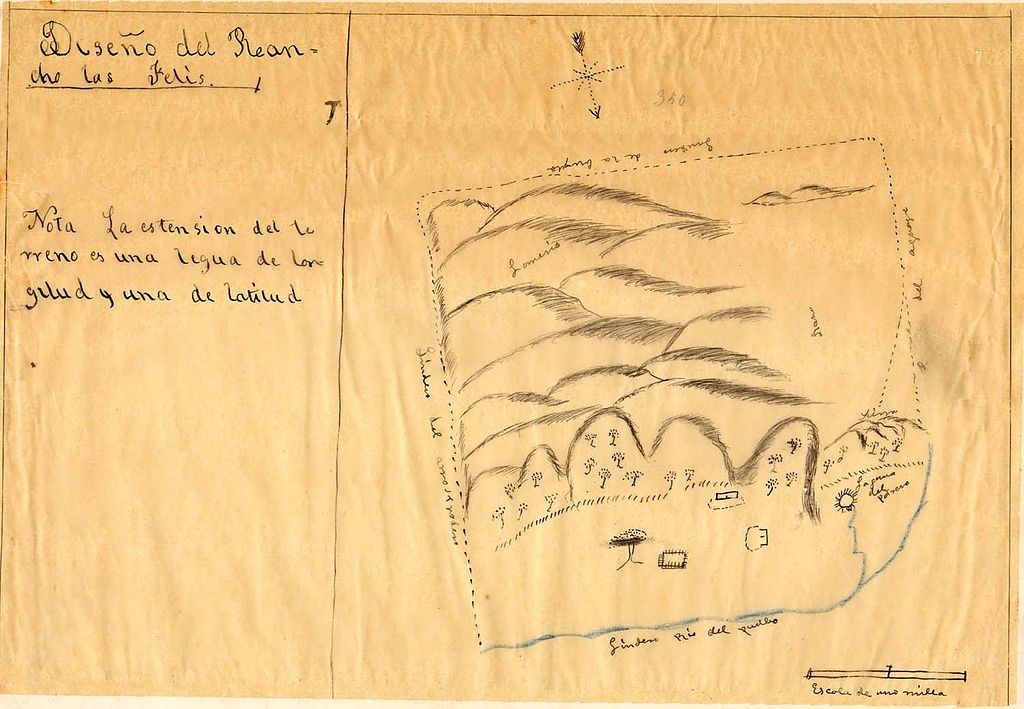 Diseño del Ran-
cho las Felis.
7
350
Nota La estension del te
rreno es una legua de lon-
gitud y una de latitud
Lindero de la
Lomerio
del aguage
Lindero del arroyo
Sierra
Laguna
del
Potrero
Lindero rio del pueblo
Escala de una milla